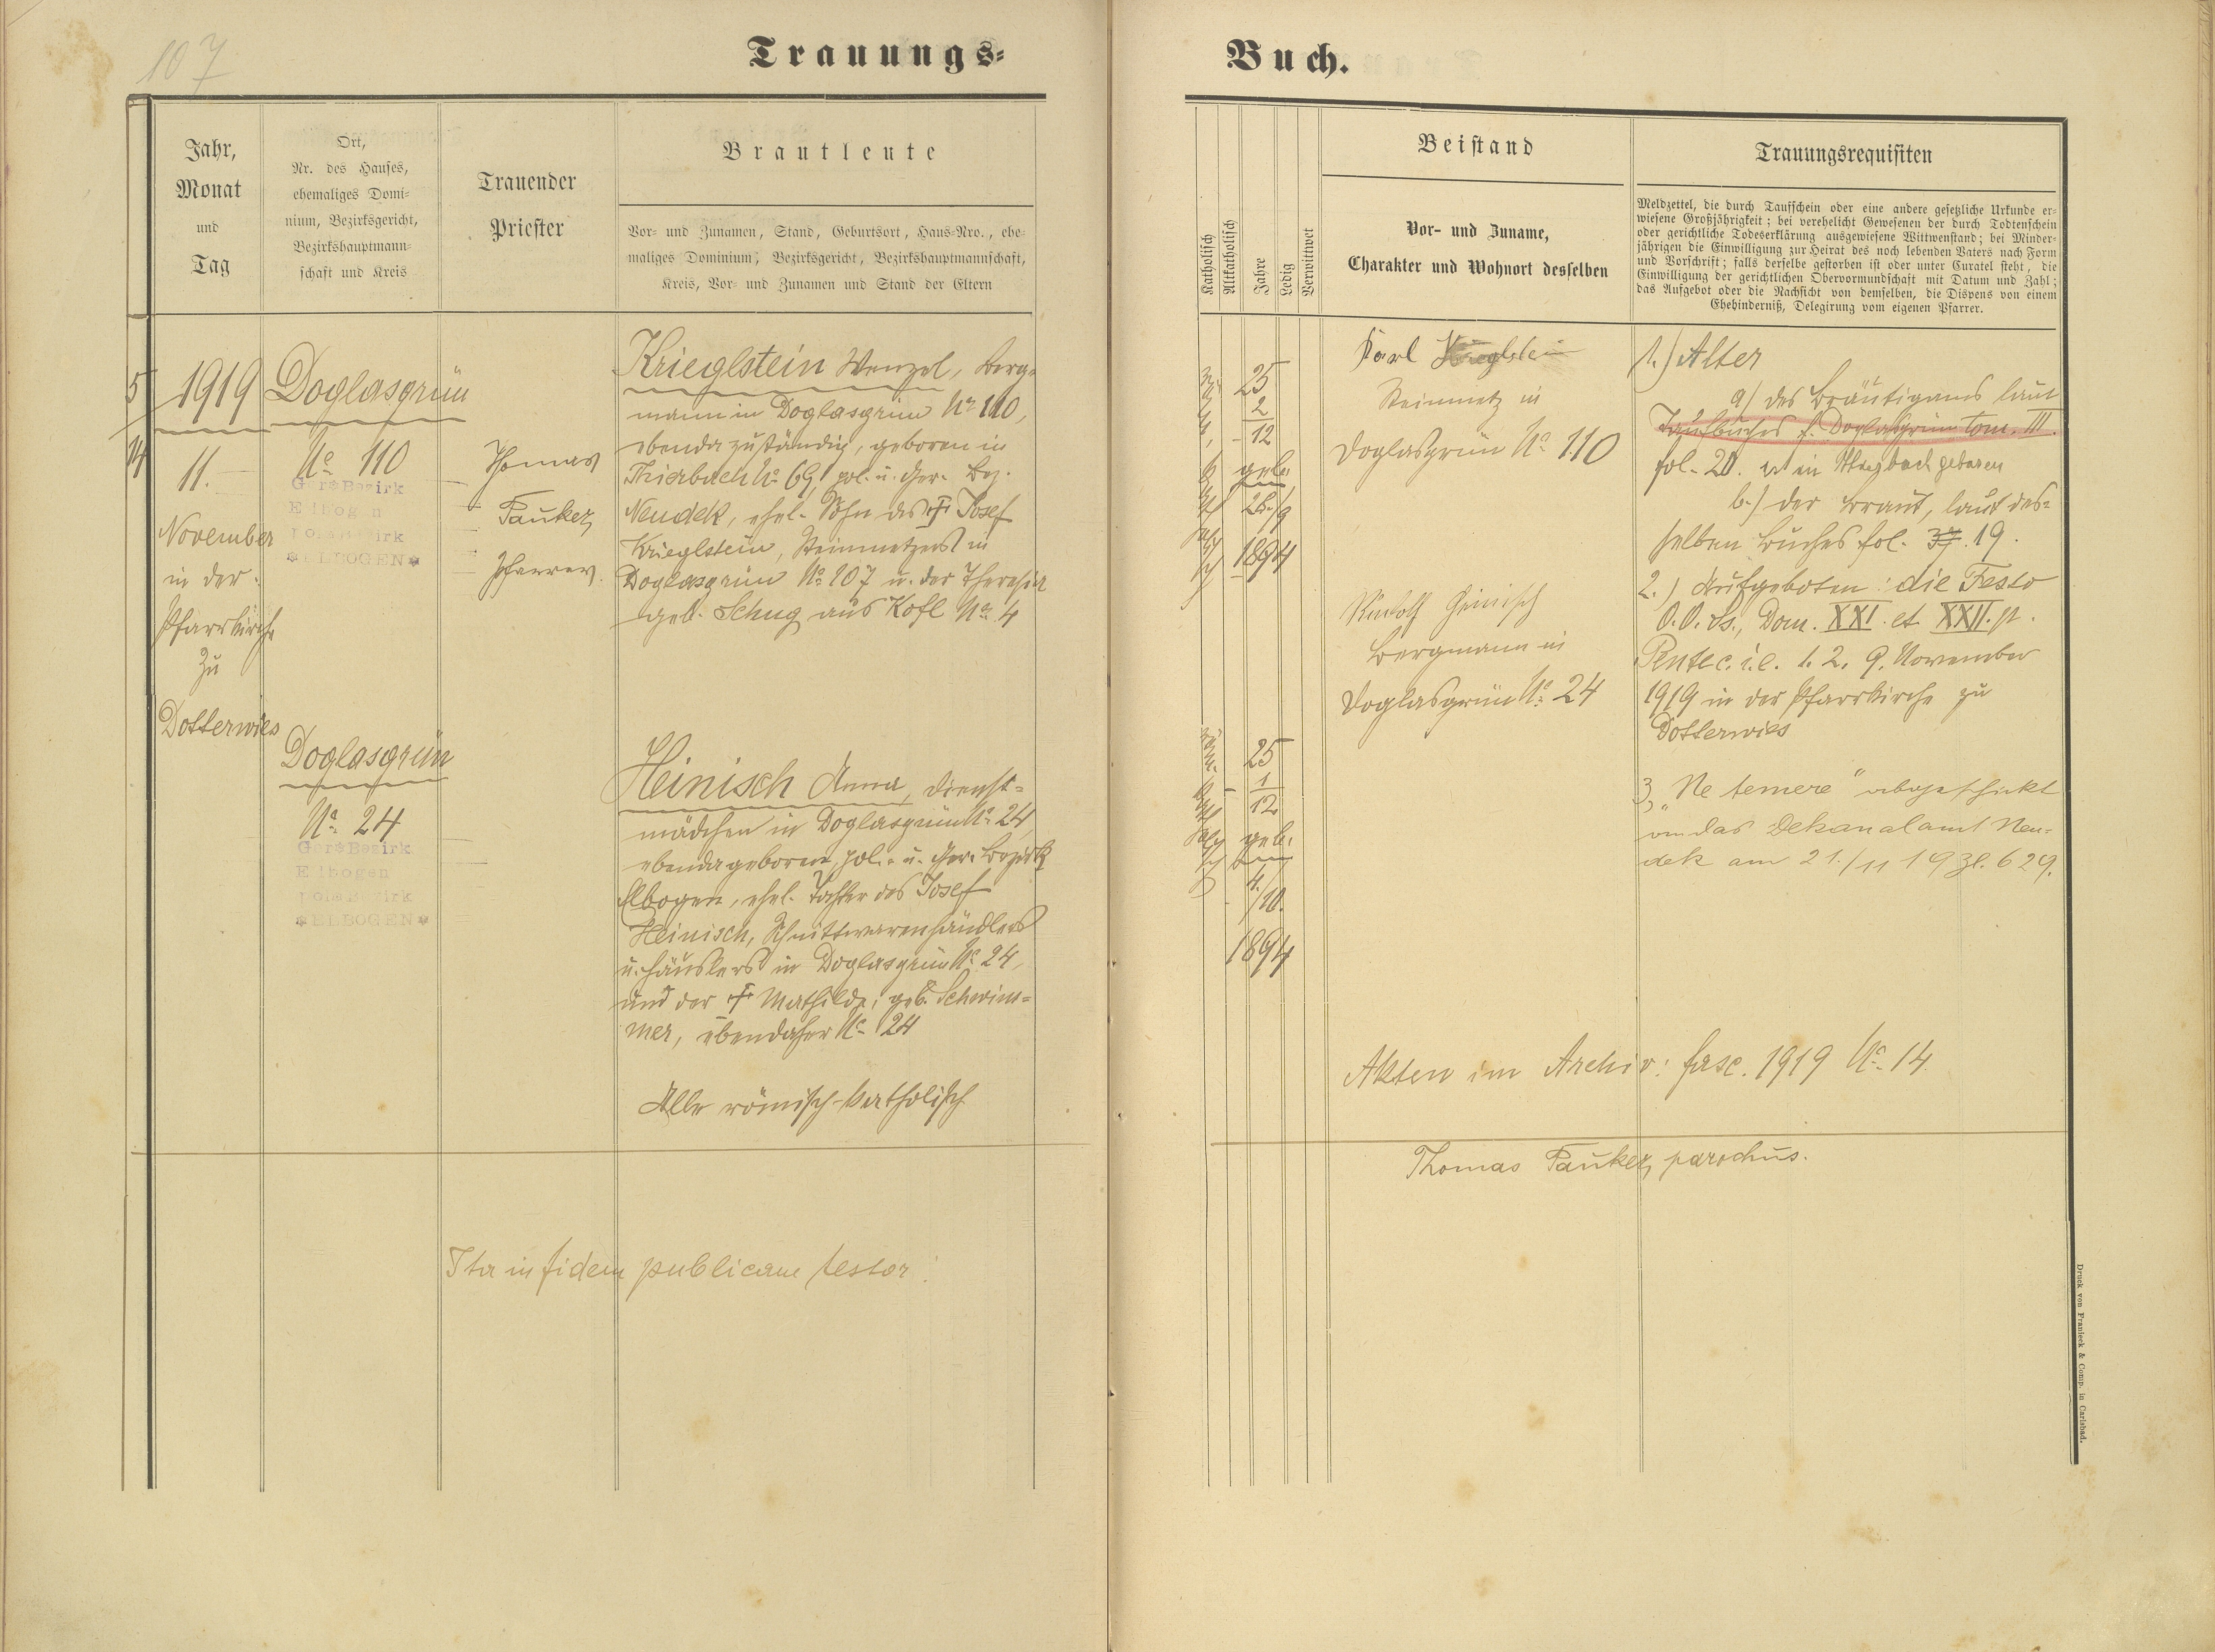 107
Trauungs=
Buch.
Jahr,
Monat
und
Tag
Ort,
Nr. des Hauses,
ehemaliges Domi=
nium, Bezirksgericht,
Bezirkshauptmann=
schaft und Kreis
Trauender
Priester
Brautleute
Vor= und Zunamen, Stand, Geburtsort, Haus=Nro., ehe=
maliges Dominium, Bezirksgericht, Bezirkshauptmannschaft,
Kreis, Vor= und Zunamen und Stand der Eltern
5
14
1919
11.
November
in der
Pfarrkirche
zu
Dotterwies
Doglasgrün
No 110
Ger:Bezirk
Elbogen
pol:Bezirk
*ELBOGEN*
Doglasgrün
No 24
Ger:Bezirk
Elbogen
pol:Bezirk
*ELBOGEN*
Thomas
Pauker,
Pfarrer.
Krieglstein Wenzel, Berg=
mann in Doglasgrün No 110,
ebenda zuständig, geboren in
Thierbach No 69, pol. u. Ger. Bez.
Neudek, ehel. Sohn des † Josef
Krieglstein, Steinmetzers in
Doglasgrün No 107 u. der Theresia
geb. Schug aus Kofl No 4
Heinisch Anna, Dienst=
mädchen in Doglasgrün No 24,
ebenda geboren, pol.= u. Ger. Bezirk
Elbogen, ehel. Tochter des Josef
Heinisch, Schnittwarenhändlers
u. Häuslers in Doglasgrün No 24,
und der † Mathilde, geb. Schwim=
mer, ebendaher No 24
Alle römisch=katholisch
Ita in fidem publicam testor:
Katholisch
Altkatholisch
Jahre
Ledig
Verwittwet
Beistand
Vor= und Zuname,
Charakter und Wohnort desselben
Trauungsrequisiten
Meldzettel, die durch Taufschein oder eine andere gesetzliche Urkunde er=
wiesene Großjährigkeit; bei verehelicht Gewesenen der durch Todtenschein
oder gerichtliche Todeserklärung ausgewiesene Wittwenstand; bei Minder=
jährigen die Einwilligung zur Heirat des noch lebenden Vaters nach Form
und Vorschrift; falls derselbe gestorben ist oder unter Curatel steht, die
Einwilligung der gerichtlichen Obervormundschaft mit Datum und Zahl;
das Aufgebot oder die Nachsicht von demselben, die Dispens von einem
Ehehinderniß, Delegirung vom eigenen Pfarrer.
25
2
12
geb.
28./9
1894
25
1
12
geb.
4.
/10.
1894
Karl Krieglstein
Steinmetz in
Doglasgrün No 110
Rudolf Heinisch
Bergmann in
Doglasgrün No 24
1.) Alter
a) des Bräutigams laut
Taufbuches f. Doglasgrün tom. III.
fol. 20. ist in Thierbach geboren
b.) der Braut, laut des=
selben Buches fol. 37. 19.
2.) Aufgeboten: die Festo
O.O. Ss., Dom. XXI. et XXII. p.
Pentec. i.e. 1. 2. 9. November
1919 in der Pfarrkirche zu
Dotterwies
3, "Ne temere" abgeschickt
an das Dekanalamt Neu=
dek am 21./11 19 Zl. 629.
Akten im Archiv: fasc. 1919 No 14.
Thomas Pauker, parochus.
Druck von Franieck & Comp. in Carlsbad.